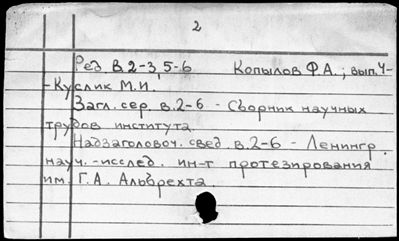 2
Ред. в. 2-3, 5-6 Копылов Ф.А.; вып. 4-
- Куслик М.И.
Загл. сер. в. 2-6 - Сборник научных
трудов института.
Надзаголовоч. свед. в. 2-6 - Ленингр.
науч.-исслед. ин-т протезирования
им. Г.А. Альбрехта.